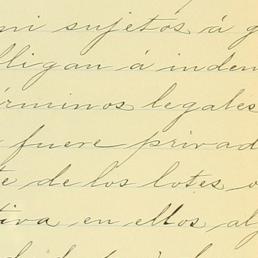 ni sujetos á g
lligan á inden
érminos legales
fuere privad
te de los lotes o
tiva en ellos al